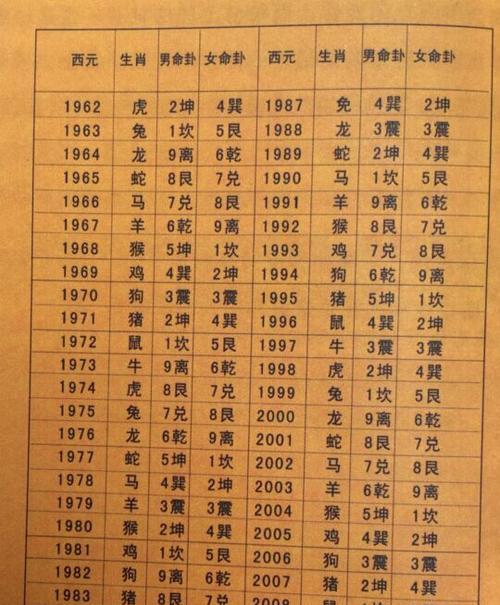 西元 生肖 男命卦 女命卦 西元 生肖 男命卦 女命卦
1962 虎 2坤 4巽 1987 兔 4巽 2坤
1963 兔 1坎 5艮 1988 龙 3震 3震
1964 龙 9离 6乾 1989 蛇 2坤 4巽
1965 蛇 8艮 7兑 1990 马 1坎 5艮
1966 马 7兑 8艮 1991 羊 9离 6乾
1967 羊 6乾 9离 1992 猴 8艮 7兑
1968 猴 5坤 1坎 1993 鸡 7兑 8艮
1969 鸡 4巽 2坤 1994 狗 6乾 9离
1970 狗 3震 3震 1995 猪 5坤 1坎
1971 猪 2坤 4巽 1996 鼠 4巽 2坤
1972 鼠 1坎 5艮 1997 牛 3震 3震
1973 牛 9离 6乾 1998 虎 2坤 4巽
1974 虎 8艮 7兑 1999 兔 1坎 5艮
1975 兔 7兑 8艮 2000 龙 9离 6乾
1976 龙 6乾 9离 2001 蛇 8艮 7兑
1977 蛇 5坤 1坎 2002 马 7兑 8艮
1978 马 4巽 2坤 2003 羊 6乾 9离
1979 羊 3震 3震 2004 猴 5坤 1坎
1980 猴 2坤 4巽 2005 鸡 4巽 2坤
1981 鸡 1坎 5艮 2006 狗 3震 3震
1982 狗 9离 6乾 2007 猪 2坤 4巽
1983 猪 8艮 7兑 2008